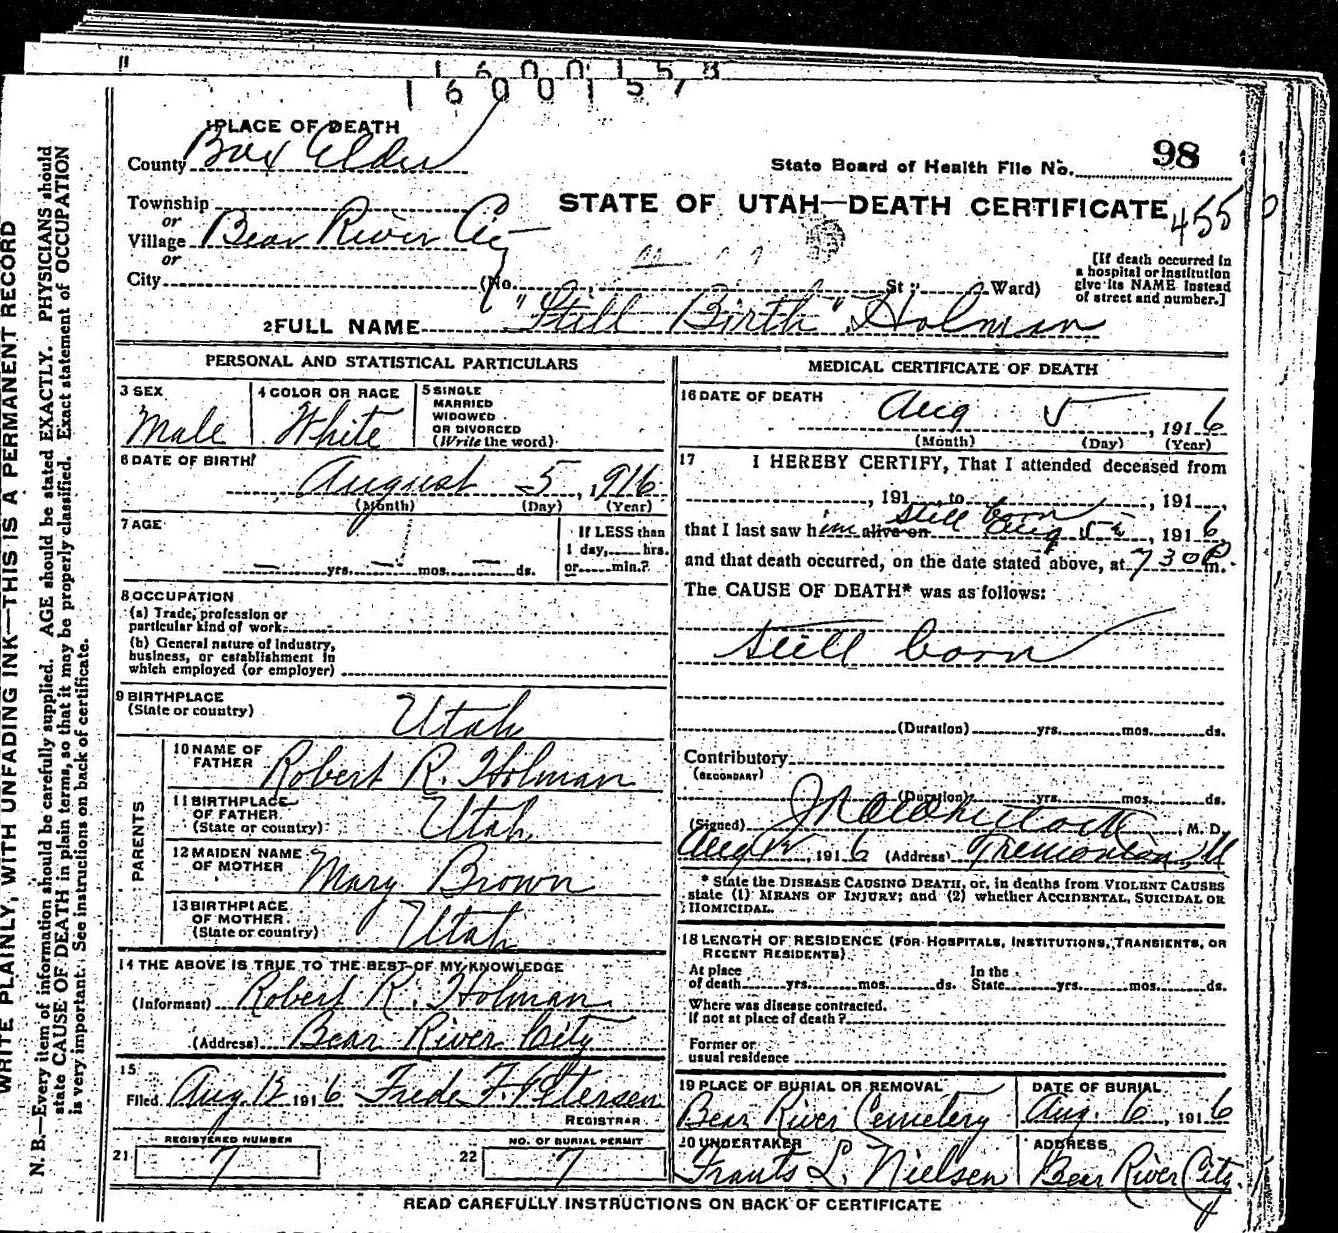 1 6 0 0 1 5 7
1 PLACE OF DEATH
County Box Elder
State Board of Health File No. 98
Township
or
Village Bear River City
or
City
STATE OF UTAH—DEATH CERTIFICATE
455
(No. St.; Ward)
[If death occurred in
a hospital or institution
give its NAME instead
of street and number.]
2 FULL NAME "Still Birth" Holman
PERSONAL AND STATISTICAL PARTICULARS
3 SEX
Male
4 COLOR OR RACE
White
5 SINGLE
MARRIED
WIDOWED
OR DIVORCED
(Write the word)
6 DATE OF BIRTH
August 5, 1916
(Month) (Day) (Year)
7 AGE
yrs. mos. ds.
If LESS than
1 day, hrs.
or min.?
8 OCCUPATION
(a) Trade, profession or
particular kind of work
(b) General nature of industry,
business, or establishment in
which employed (or employer)
9 BIRTHPLACE
(State or country) Utah
PARENTS
10 NAME OF
FATHER Robert R. Holman
11 BIRTHPLACE
OF FATHER
(State or country) Utah
12 MAIDEN NAME
OF MOTHER Mary Brown
13 BIRTHPLACE
OF MOTHER
(State or country) Utah
14 THE ABOVE IS TRUE TO THE BEST OF MY KNOWLEDGE
(Informant) Robert R. Holman
(Address) Bear River City
15
Filed Aug 12 1916 Frede F. Petersen
REGISTRAR
REGISTERED NUMBER
21 7
NO. OF BURIAL PERMIT
22 7
MEDICAL CERTIFICATE OF DEATH
16 DATE OF DEATH
Aug 5, 1916
(Month) (Day) (Year)
17 I HEREBY CERTIFY, That I attended deceased from
, 191 , to , 191
still born
that I last saw him alive on Aug 5, 1916
and that death occurred, on the date stated above, at 730 P m.
The CAUSE OF DEATH* was as follows:
Still born
(Duration) yrs. mos. ds.
Contributory
(SECONDARY)
(Duration) yrs. mos. ds.
(Signed) M. D.
Aug 12, 1916 (Address) Tremonton, U
* State the DISEASE CAUSING DEATH, or, in deaths from VIOLENT CAUSES
state (1) MEANS OF INJURY; and (2) whether ACCIDENTAL, SUICIDAL OR
HOMICIDAL.
18 LENGTH OF RESIDENCE (FOR HOSPITALS, INSTITUTIONS, TRANSIENTS, OR
RECENT RESIDENTS)
At place
of death yrs. mos. ds.
In the
State yrs. mos. ds.
Where was disease contracted,
if not at place of death?
Former or
usual residence
19 PLACE OF BURIAL OR REMOVAL
Bear River Cemetery
DATE OF BURIAL
Aug. 6, 1916
20 UNDERTAKER
Frants L. Nielsen
ADDRESS
Bear River City
READ CAREFULLY INSTRUCTIONS ON BACK OF CERTIFICATE
WRITE PLAINLY, WITH UNFADING INK—THIS IS A PERMANENT RECORD
N. B.—Every item of information should be carefully supplied. AGE should be stated EXACTLY. PHYSICIANS should
state CAUSE OF DEATH in plain terms, so that it may be properly classified. Exact statement of OCCUPATION
is very important. See instructions on back of certificate.